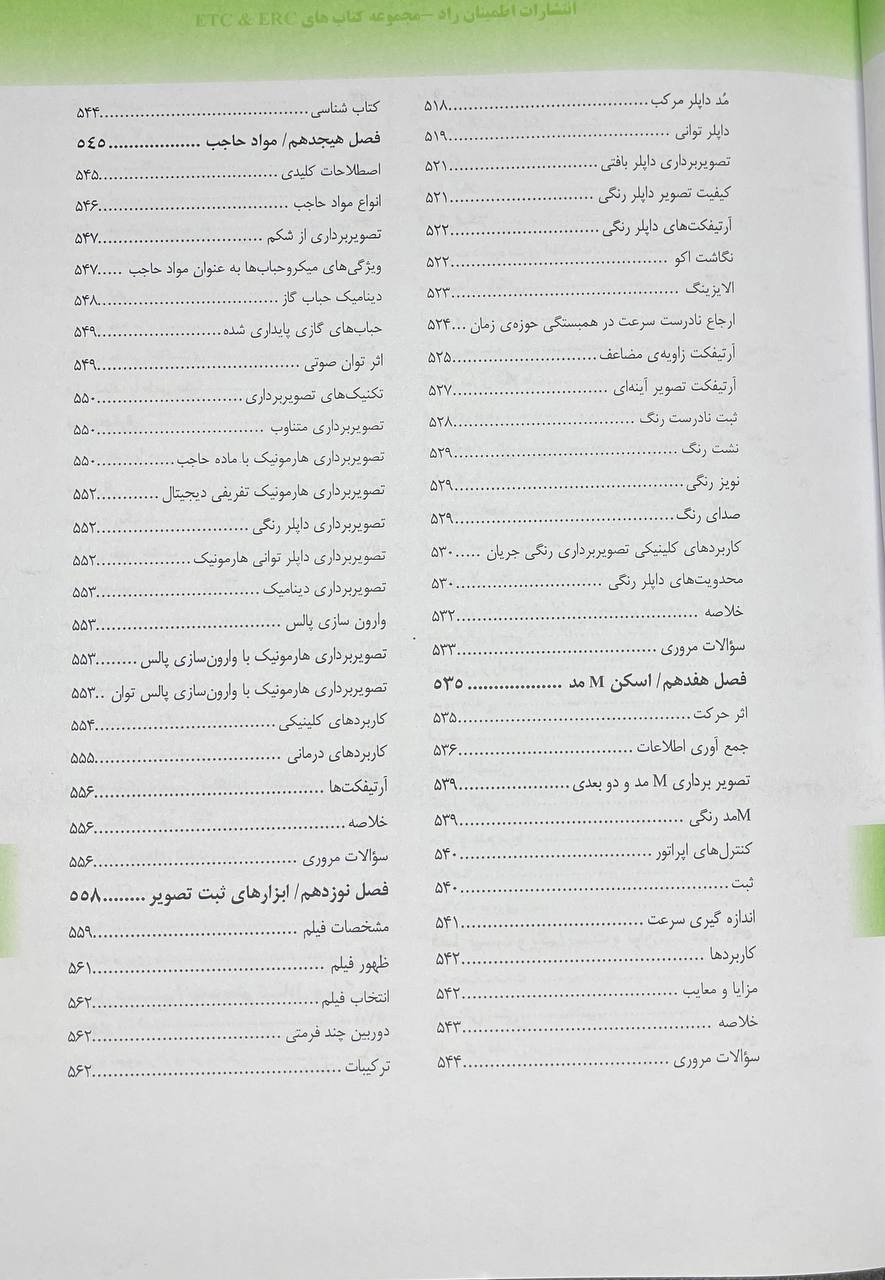 انتشارات اطمینان راد –مجموعه کتاب های ETC & ERC
مُد داپلر مرکب........................................۵۱۸
داپلر توانی ...........................................۵۱۹
تصویربرداری داپلر بافتی.............................۵۲۱
کیفیت تصویر داپلر رنگی ............................۵۲۱
آرتیفکت‌های داپلر رنگی .............................۵۲۲
نگاشت اکو ...........................................۵۲۲
الایزینگ .............................................۵۲۳
ارجاع نادرست سرعت در همبستگی حوزه‌ی زمان ...۵۲۴
آرتیفکت زاویه‌ی مضاعف.............................۵۲۵
آرتیفکت تصویر آینه‌ای ..............................۵۲۷
ثبت نادرست رنگ ...................................۵۲۸
نشت رنگ ............................................۵۲۹
نویز رنگی............................................۵۲۹
صدای رنگ...........................................۵۲۹
کاربردهای کلینیکی تصویربرداری رنگی جریان .....۵۳۰
محدویت‌های داپلر رنگی .............................۵۳۰
خلاصه ...............................................۵۳۲
سؤالات مروری .......................................۵۳۳
فصل هفدهم/ اسکن M مد ..................۵۳۵
اثر حرکت.............................................۵۳۵
جمع آوری اطلاعات ..................................۵۳۶
تصویر برداری M مد و دو بعدی.....................۵۳۹
Mمد رنگی ...........................................۵۳۹
کنترل‌های اپراتور.....................................۵۴۰
ثبت....................................................۵۴۰
اندازه گیری سرعت ..................................۵۴۱
کاربردها ..............................................۵۴۲
مزایا و معایب .........................................۵۴۲
خلاصه ................................................۵۴۳
سؤالات مروری .......................................۵۴۴
کتاب شناسی.........................................۵۴۴
فصل هیجدهم/ مواد حاجب ..................۵۴۵
اصطلاحات کلیدی ...................................۵۴۵
انواع مواد حاجب ....................................۵۴۶
تصویربرداری از شکم ................................۵۴۷
ویژگی‌های میکروحباب‌ها به عنوان مواد حاجب .....۵۴۷
دینامیک حباب گاز ..................................۵۴۸
حباب‌های گازی پایداری شده........................۵۴۹
اثر توان صوتی .......................................۵۴۹
تکنیک‌های تصویربرداری............................۵۵۰
تصویربرداری متناوب ................................۵۵۰
تصویربرداری هارمونیک با ماده حاجب...............۵۵۰
تصویربرداری هارمونیک تفریفی دیجیتال ............۵۵۲
تصویربرداری داپلر رنگی .............................۵۵۲
تصویربرداری داپلر توانی هارمونیک..................۵۵۲
تصویربرداری دینامیک ...............................۵۵۳
وارون سازی پالس ...................................۵۵۳
تصویربرداری هارمونیک با وارون‌سازی پالس ........۵۵۳
تصویربرداری هارمونیک با وارون‌سازی پالس توان ..۵۵۳
کاربردهای کلینیکی..................................۵۵۴
کاربردهای درمانی ...................................۵۵۵
آرتیفکت‌ها ...........................................۵۵۶
خلاصه................................................۵۵۶
سؤالات مروری .......................................۵۵۶
فصل نوزدهم/ ابزارهای ثبت تصویر ........۵۵۸
مشخصات فیلم .......................................۵۵۹
ظهور فیلم ............................................۵۶۱
انتخاب فیلم...........................................۵۶۲
دوربین چند فرمتی ...................................۵۶۲
ترکیبات...............................................۵۶۲